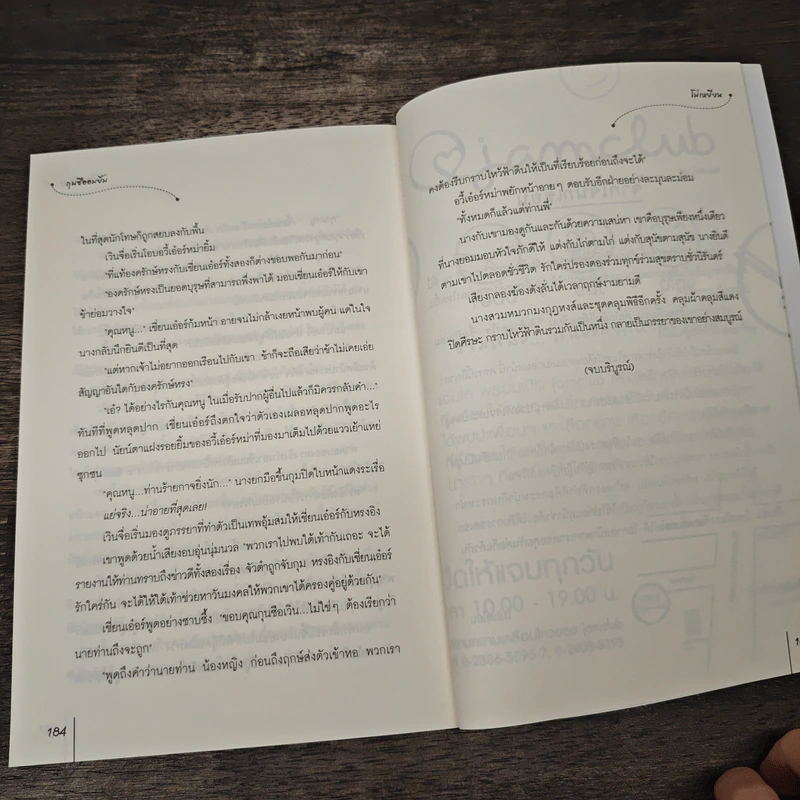 กุนซือจอมขยัน
ในที่สุดนักโทษก็ถูกสยบลงกับพื้น
เวินจื่อเริ่นโอบอวี้เอ๋อร์หม่ายิ้ม
"ที่แท้องครักษ์หรงกับเซี่ยนเอ๋อร์ทั้งสองก็ต่างชอบพอกันมาก่อน"
"องครักษ์หรงเป็นยอดบุรุษที่สามารถพึ่งพาได้ มอบเซี่ยนเอ๋อร์ให้กับเขา
ข้าย่อมวางใจ"
"คุณหนู..." เซี่ยนเอ๋อร์ก้มหน้า อายจนไม่กล้าเงยหน้าพบผู้คน แต่ในใจ
นางกลับนึกยินดีเป็นที่สุด
"แต่หากเจ้าไม่อยากออกเรือนไปกับเขา ข้าก็จะถือเสียว่าข้าไม่เคยเอ่ย
สัญญาอันใดกับองครักษ์หรง"
"เอ๋? ได้อย่างไรกันคุณหนู ในเมื่อรับปากผู้อื่นไปแล้วก็มิควรกลับคำ..."
ทันทีที่พูดหลุดปาก เซี่ยนเอ๋อร์ถึงตกใจว่าตัวเองเผลอหลุดปากพูดอะไร
ออกไป นัยน์ตาแฝงรอยยิ้มของอวี้เอ๋อร์หม่าที่มองมาเต็มไปด้วยแววเย้าแหย่
ซุกซน
"คุณหนู...ท่านร้ายกาจยิ่งนัก..." นางยกมือขึ้นกุมปิดใบหน้าแดงระเรื่อ
แย่จริง...น่าอายที่สุดเลย!
เวินจื่อเริ่นมองดูภรรยาที่ทำตัวเป็นเทพอุ้มสมให้เซี่ยนเอ๋อร์กับหรงอิง
เขาพูดด้วยน้ำเสียงอบอุ่นนุ่มนวล "พวกเราไปพบใต้เท้ากันเถอะ จะได้
รายงานให้ท่านทราบถึงข่าวดีทั้งสองเรื่อง จัวดำถูกจับกุม หรงอิงกับเซี่ยนเอ๋อร์
รักใคร่กัน จะได้ให้ใต้เท้าช่วยหาวันมงคลให้พวกเขาได้ครองคู่อยู่ด้วยกัน"
เซี่ยนเอ๋อร์พูดอย่างซาบซึ้ง "ขอบคุณกุนซือเวิน...ไม่ใช่ๆ ต้องเรียกว่า
นายท่านถึงจะถูก"
"พูดถึงคำว่านายท่าน น้องหญิง ก่อนถึงฤกษ์ส่งตัวเข้าหอ พวกเรา
184
โม่เหยียน
คงต้องรีบกราบไหว้ฟ้าดินให้เป็นที่เรียบร้อยก่อนถึงจะได้"
อวี้เอ๋อร์หม่าพยักหน้าอายๆ ตอบรับอีกฝ่ายอย่างละมุนละม่อม
"ทั้งหมดก็แล้วแต่ท่านพี่"
นางกับเขามองดูกันและกันด้วยความเสน่หา เขาคือบุรุษเพียงหนึ่งเดียว
ที่นางยอมมอบหัวใจภักดีให้ แต่งกับไก่ตามไก่ แต่งกับสุนัขตามสุนัข นางยินดี
ตามเขาไปตลอดชั่วชีวิต รักใคร่ปรองดองร่วมทุกข์ร่วมสุขตราบชั่วนิรันดร์
เสียงกลองฆ้องดังลั่นได้เวลาฤกษ์งามยามดี
นางสวมหมวกมงกุฎหงส์และชุดคลุมพิธีอีกครั้ง คลุมผ้าคลุมสีแดง
ปิดศีรษะ กราบไหว้ฟ้าดินรวมกันเป็นหนึ่ง กลายเป็นภรรยาของเขาอย่างสมบูรณ์
(จบบริบูรณ์)